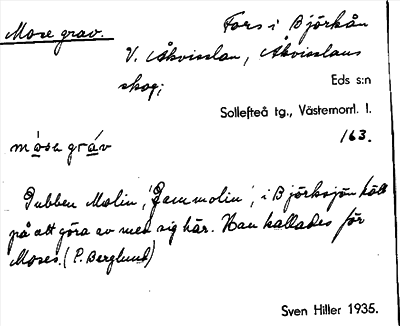 Mose grav.
Fors i Björkån
V. Åkvisslan, Åkvisslans
skog;
Eds s:n
Sollefteå tg., Västernorrl. l.
163.
mòse gráv
Gubben Molin, 'Gammolin', i Björksjön höll
på att göra av med sig här. Han kallades för
Moses. (P. Berglund)
Sven Hiller 1935.